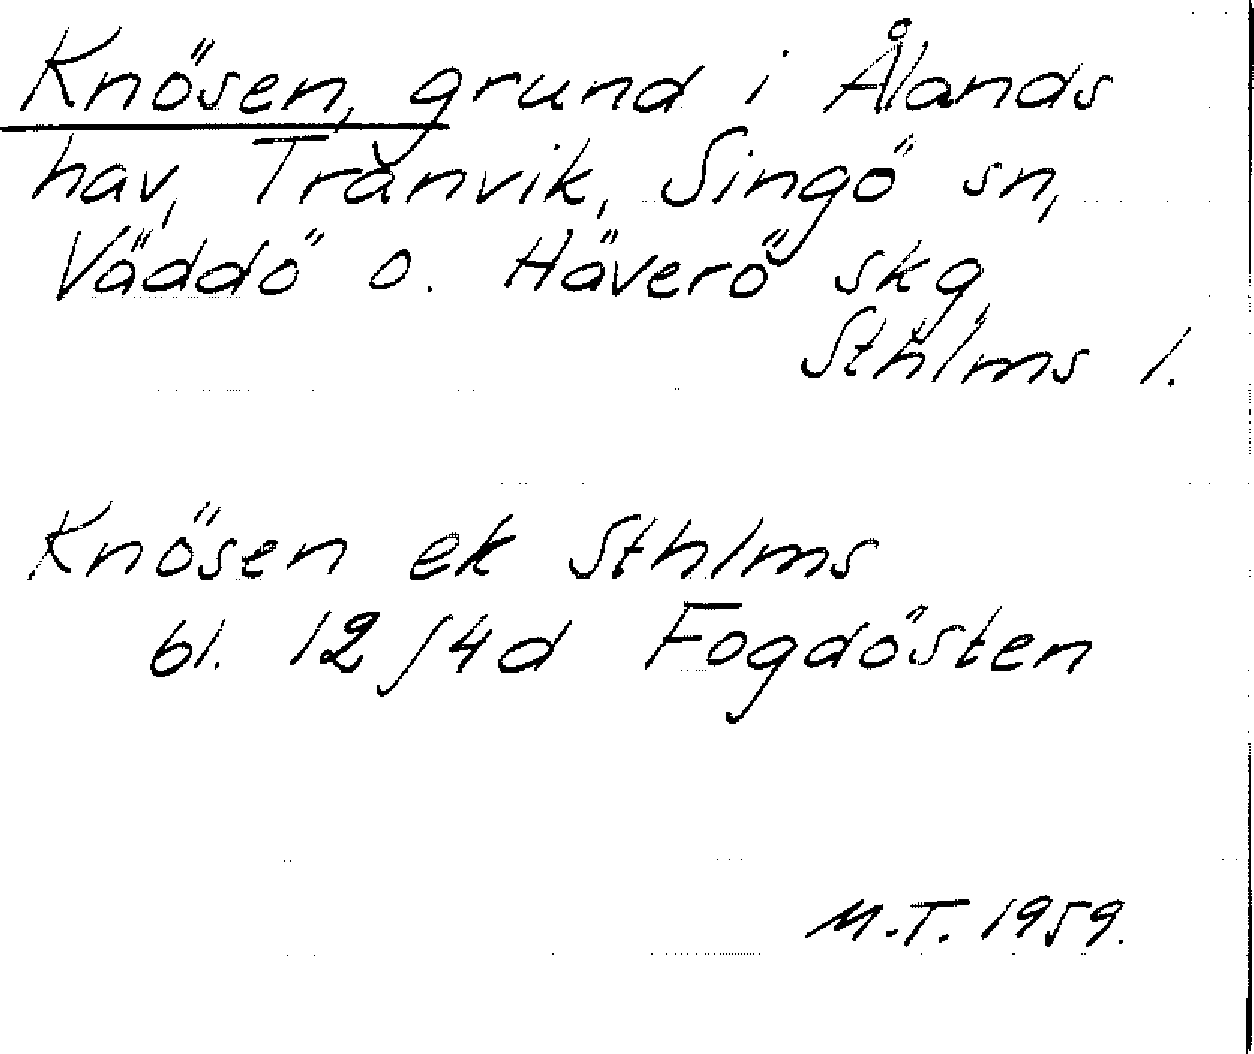 Knösen, grund i Ålands
hav, Tranvik, Singö sn,
Väddö o. Häverö skg
Sthlms l.
Knösen ek Sthlms
bl. 12 J4d Fogdösten
M.T. 1959.